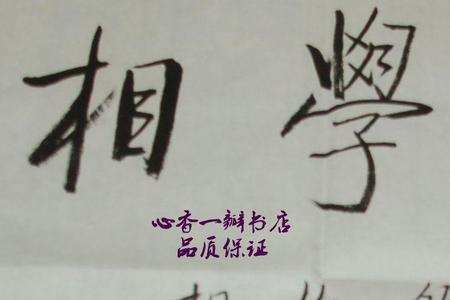 相學
心香一瓣书店
品质保证